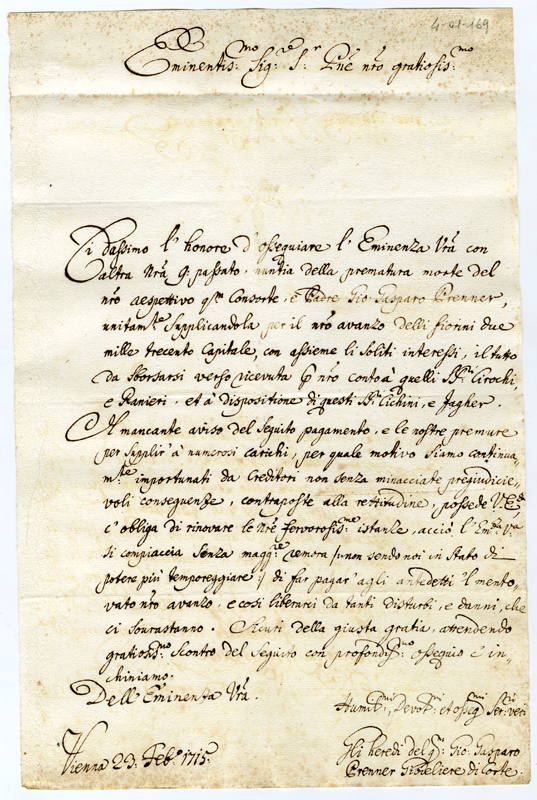 4-01-169
Eminentis:mo Sig:re S:r Pne nro gratiosis:mo
Ci dassimo l'honore d'ossequiare l'Eminenza Vra con
altra Nra q. passato. nuntia della prematura morte del
nro respettivo qm Consorte, e Padre Gio: Gasparo Prenner,
unitam:te supplicandola per il nro avanzo delli fiorini due
mille trecento Capitale, con assieme li soliti interessi, il tutto
da sborsarsi verso ricevuta p nro conto à quelli SS:ri Cirochi,
e Ranieri. et à dispositione di questi SS:ri Cichini, e Jagher.
Il mancante aviso del seguito pagamento, e le nostre premure
per supplir' à numerosi carichi, per quale motivo siamo continua-
m:te importunati da Creditori non senza minacciate pregiudicie-
voli conseguenze, contraposte alla rettitudine, possede V:
c'obliga di rinovare le Nre fervorosis:me istanze, acciò l'Em:za V:ra
si compiaccia senza magg:re remora /: non sendo noi in stato di
potere più temporeggiare :/ di far pagar' agli antedetti 'l mento-
vato nro avanzo, e così liberarci da tanti disturbi, e danni, che
ci sourastanno. Sicuri della giusta gratia, attendendo
gratiosis:mo scontro del seguito con profondis:mo ossequio c'in-
chiniamo.
Dell'Eminenza Vra.
Humil:mi, Devot:mi et osseq:mi Ser:ri veri
Vienna 29. Feb:o 1715.
Gli heredi del qm: Gio: Gasparo
Prenner Gioieliere di Corte.